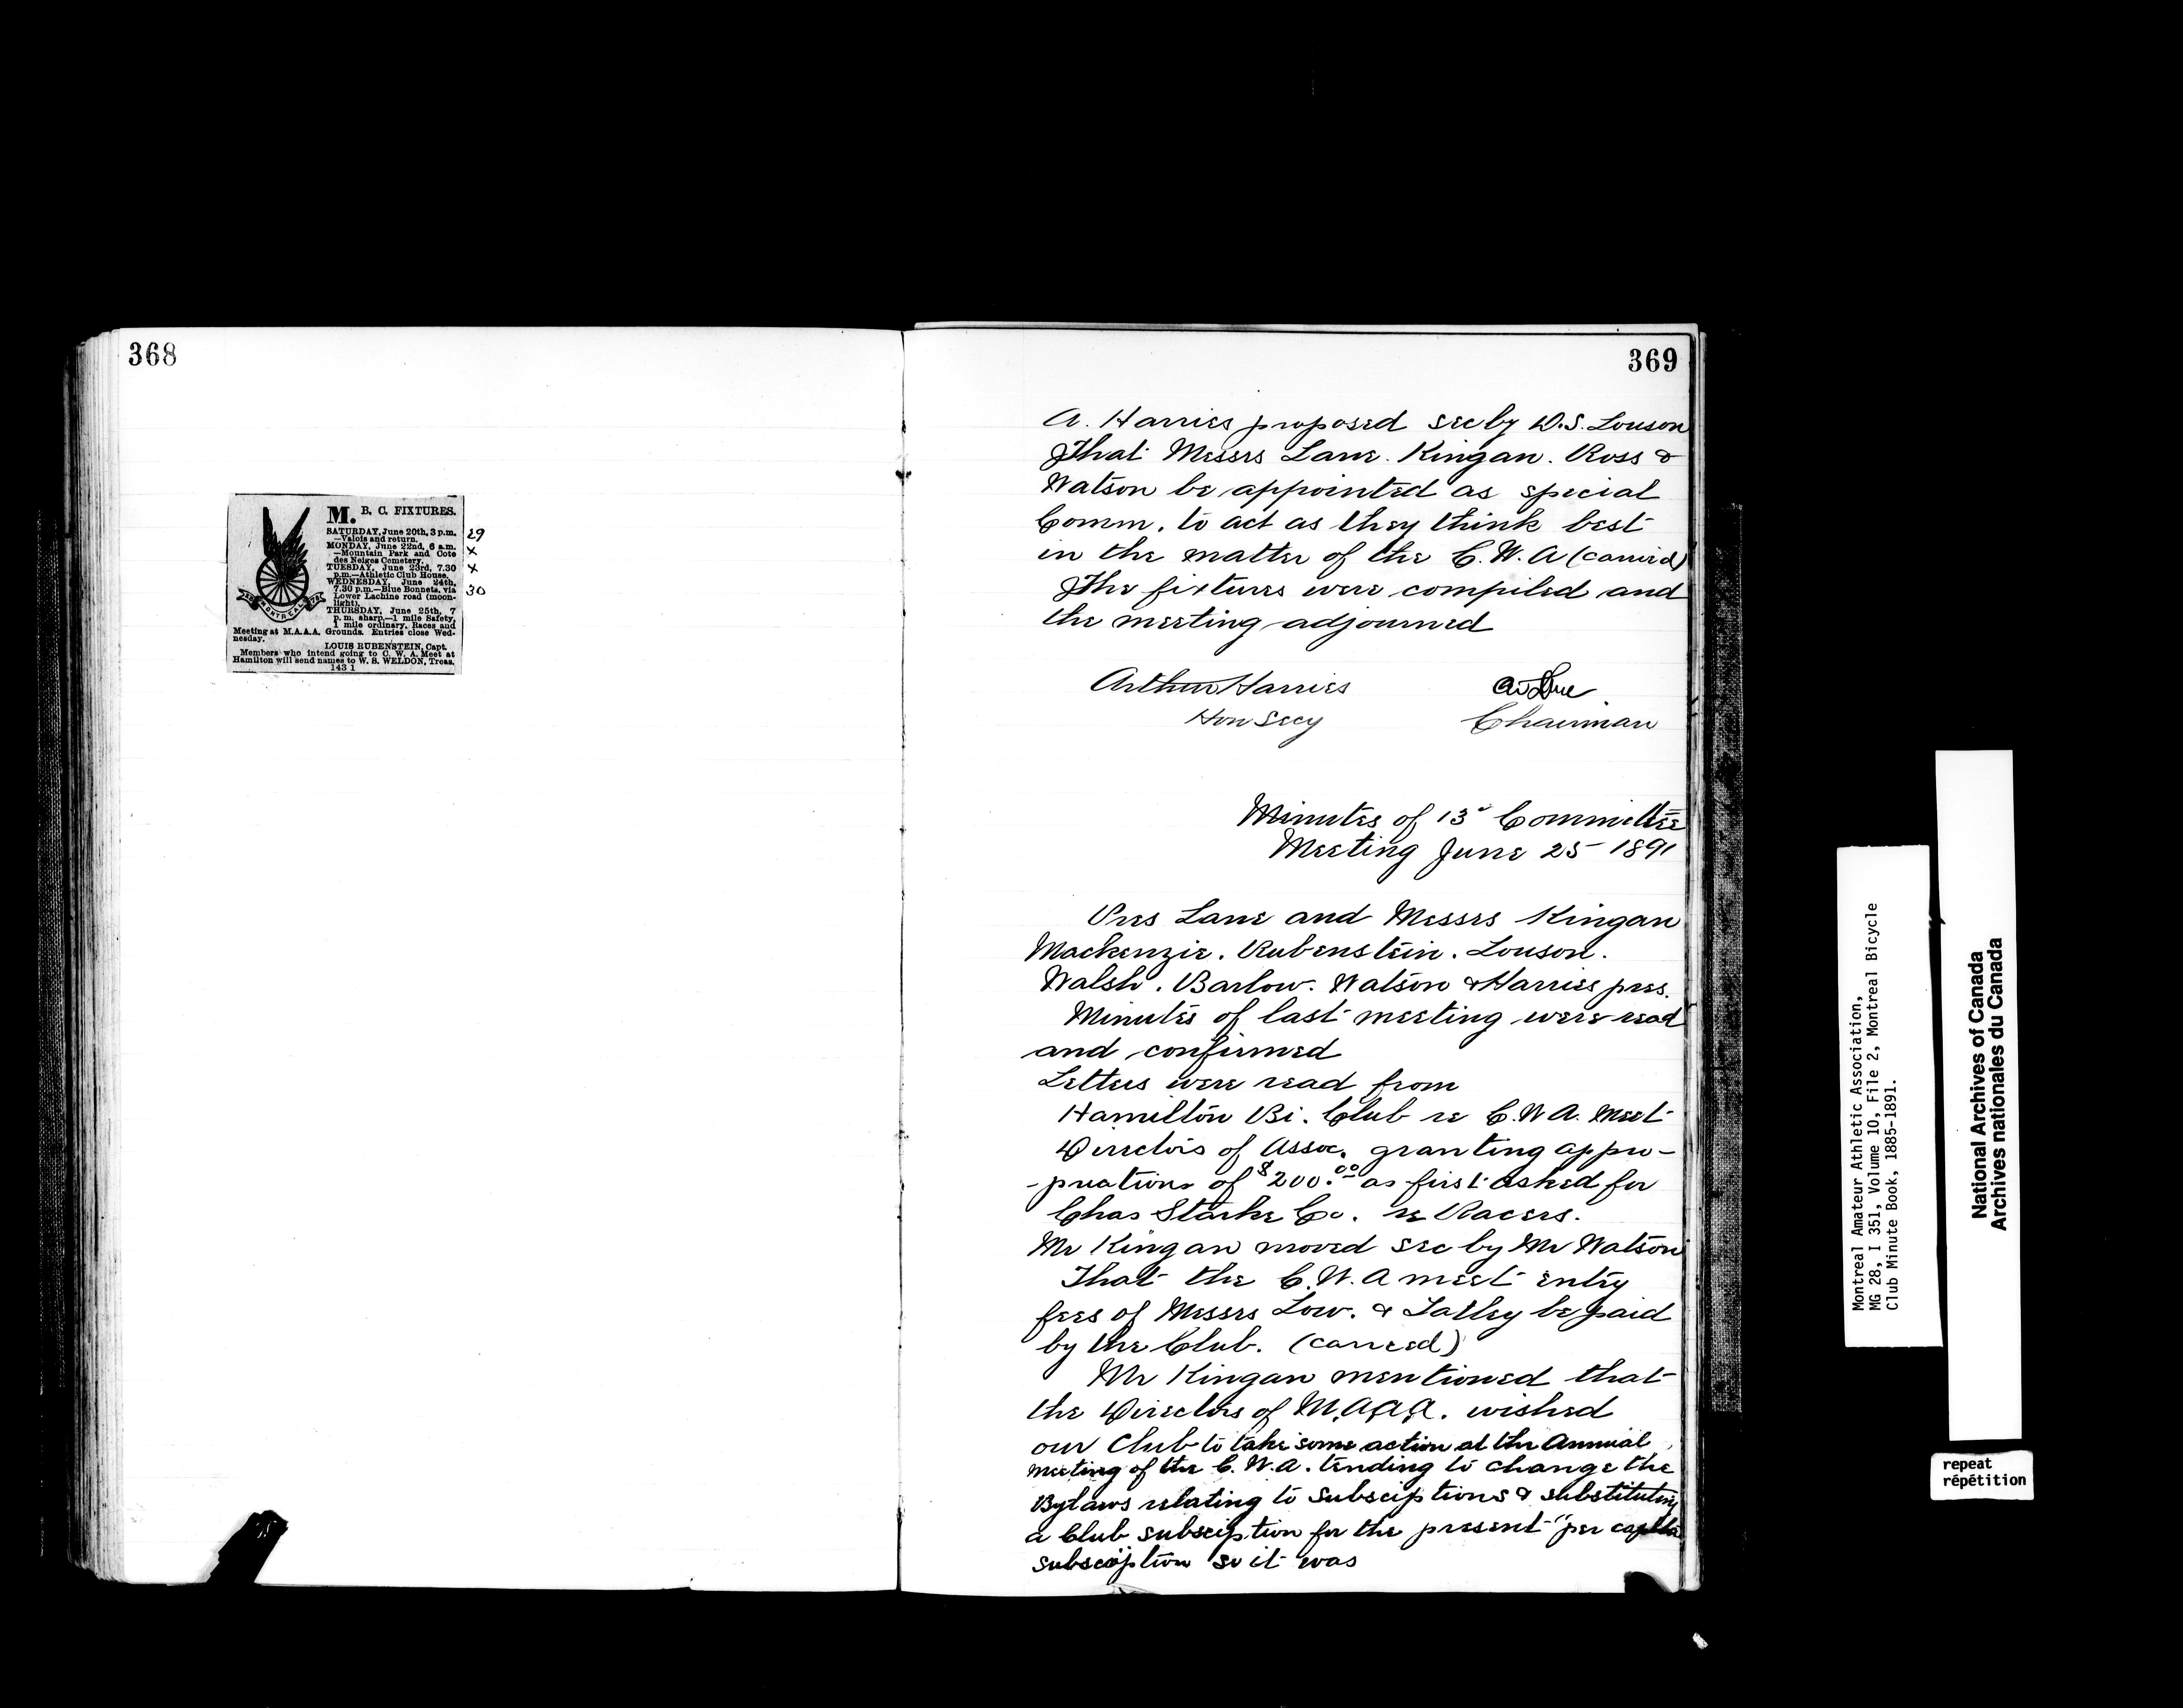 368
M. B. C. FIXTURES.
SATURDAY, June 20th, 3 p.m.
—Valois and return.
MONDAY, June 22nd, 6 a.m.
—Mountain Park and Cote
des Neiges Cemetery.
TUESDAY, June 23rd, 7.30
p.m.—Athletic Club House.
WEDNESDAY, June 24th,
7.30 p.m.—Blue Bonnets, via
Lower Lachine road (moon-
light).
THURSDAY, June 25th, 7
p.m. sharp.—1 mile Safety,
1 mile ordinary, Races and
Meeting at M.A.A.A. Grounds. Entries close Wed-
nesday.
LOUIS RUBENSTEIN, Capt.
Members who intend going to C. W. A. Meet at
Hamilton will send names to W. S. WELDON, Treas.
143 1
MONTREAL
29
x
x
30
369
A. Harries proposed sec by D.S. Louson
That Messrs Lane. Kingan. Ross &
Watson be appointed as special
Comm. to act as they think best
in the matter of the C.W.A (carried)
The fixtures were compiled and
the meeting adjourned
Arthur Harries
Hon Secy
Chairman
Minutes of 13 Committee
Meeting June 25 1891
Pres Lane and Messrs Kingan
Mackenzie. Rubenstein. Louson.
Walsh. Barlow. Watson & Harries pres.
Minutes of last meeting were read
and confirmed
Letters were read from
Hamilton Bi. Club re C.W.A. Meet
Directors of Assoc. granting appro-
-priations of $200.00 as first asked for
Chas Starke Co. re Racers.
Mr Kingan moved sec by Mr Watson
That the C.W.A meet entry
fees of Messrs Low. & Tatley be paid
by the Club. (carried)
Mr Kingan mentioned that
the Directors of M.A.A.A. wished
our Club to take some action at the Annual
meeting of the C.W.A. tending to change the
Bylaws relating to Subsciptions & substituting
a Club subsciption for the present "per capita
subsciption so it was
Montreal Amateur Athletic Association,
MG 28, I 351, Volume 10, File 2, Montreal Bicycle
Club Minute Book, 1885-1891.
National Archives of Canada
Archives nationales du Canada
repeat
répétition